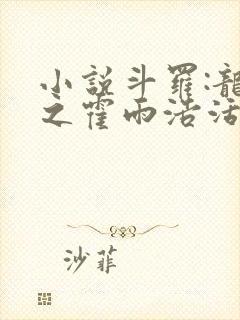 小説斗羅:龍
之霍雨浩活
沙菲